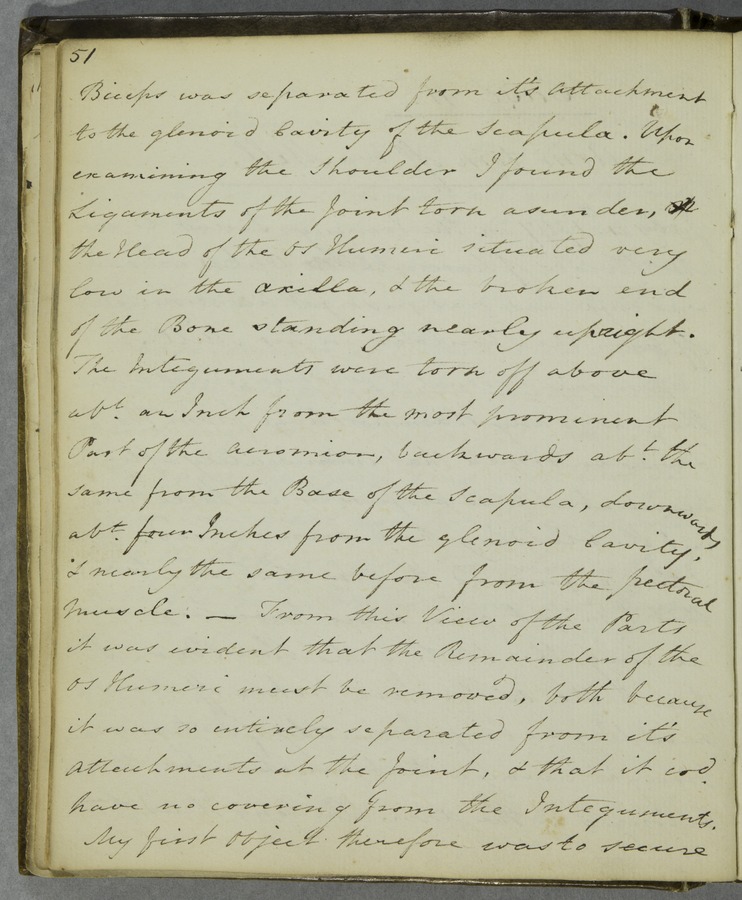 51
Biceps was separated from it's attachment
to the glenoid Cavity of the Scapula. Upon
examining the Shoulder I found the
Ligaments of the Joint torn asunder,
the Head of the os Humeri situated very
low in the axilla, & the broken end
of the Bone standing nearly upright.
The Integuments were torn off above
abt. an Inch from the most prominent
Part of the acromion, backwards abt. the
same from the Base of the Scapula, downwards
abt. four Inches from the glenoid Cavity,
& nearly the same before from the pectoral
Muscle. — From this View of the Parts
it was evident that the Remainder of the
os Humeri must be remov'd, both because
it was so entirely separated from it's
Attachments at the Joint, & that it cod.
have no covering from the Integuments.
My first Object therefore was to secure